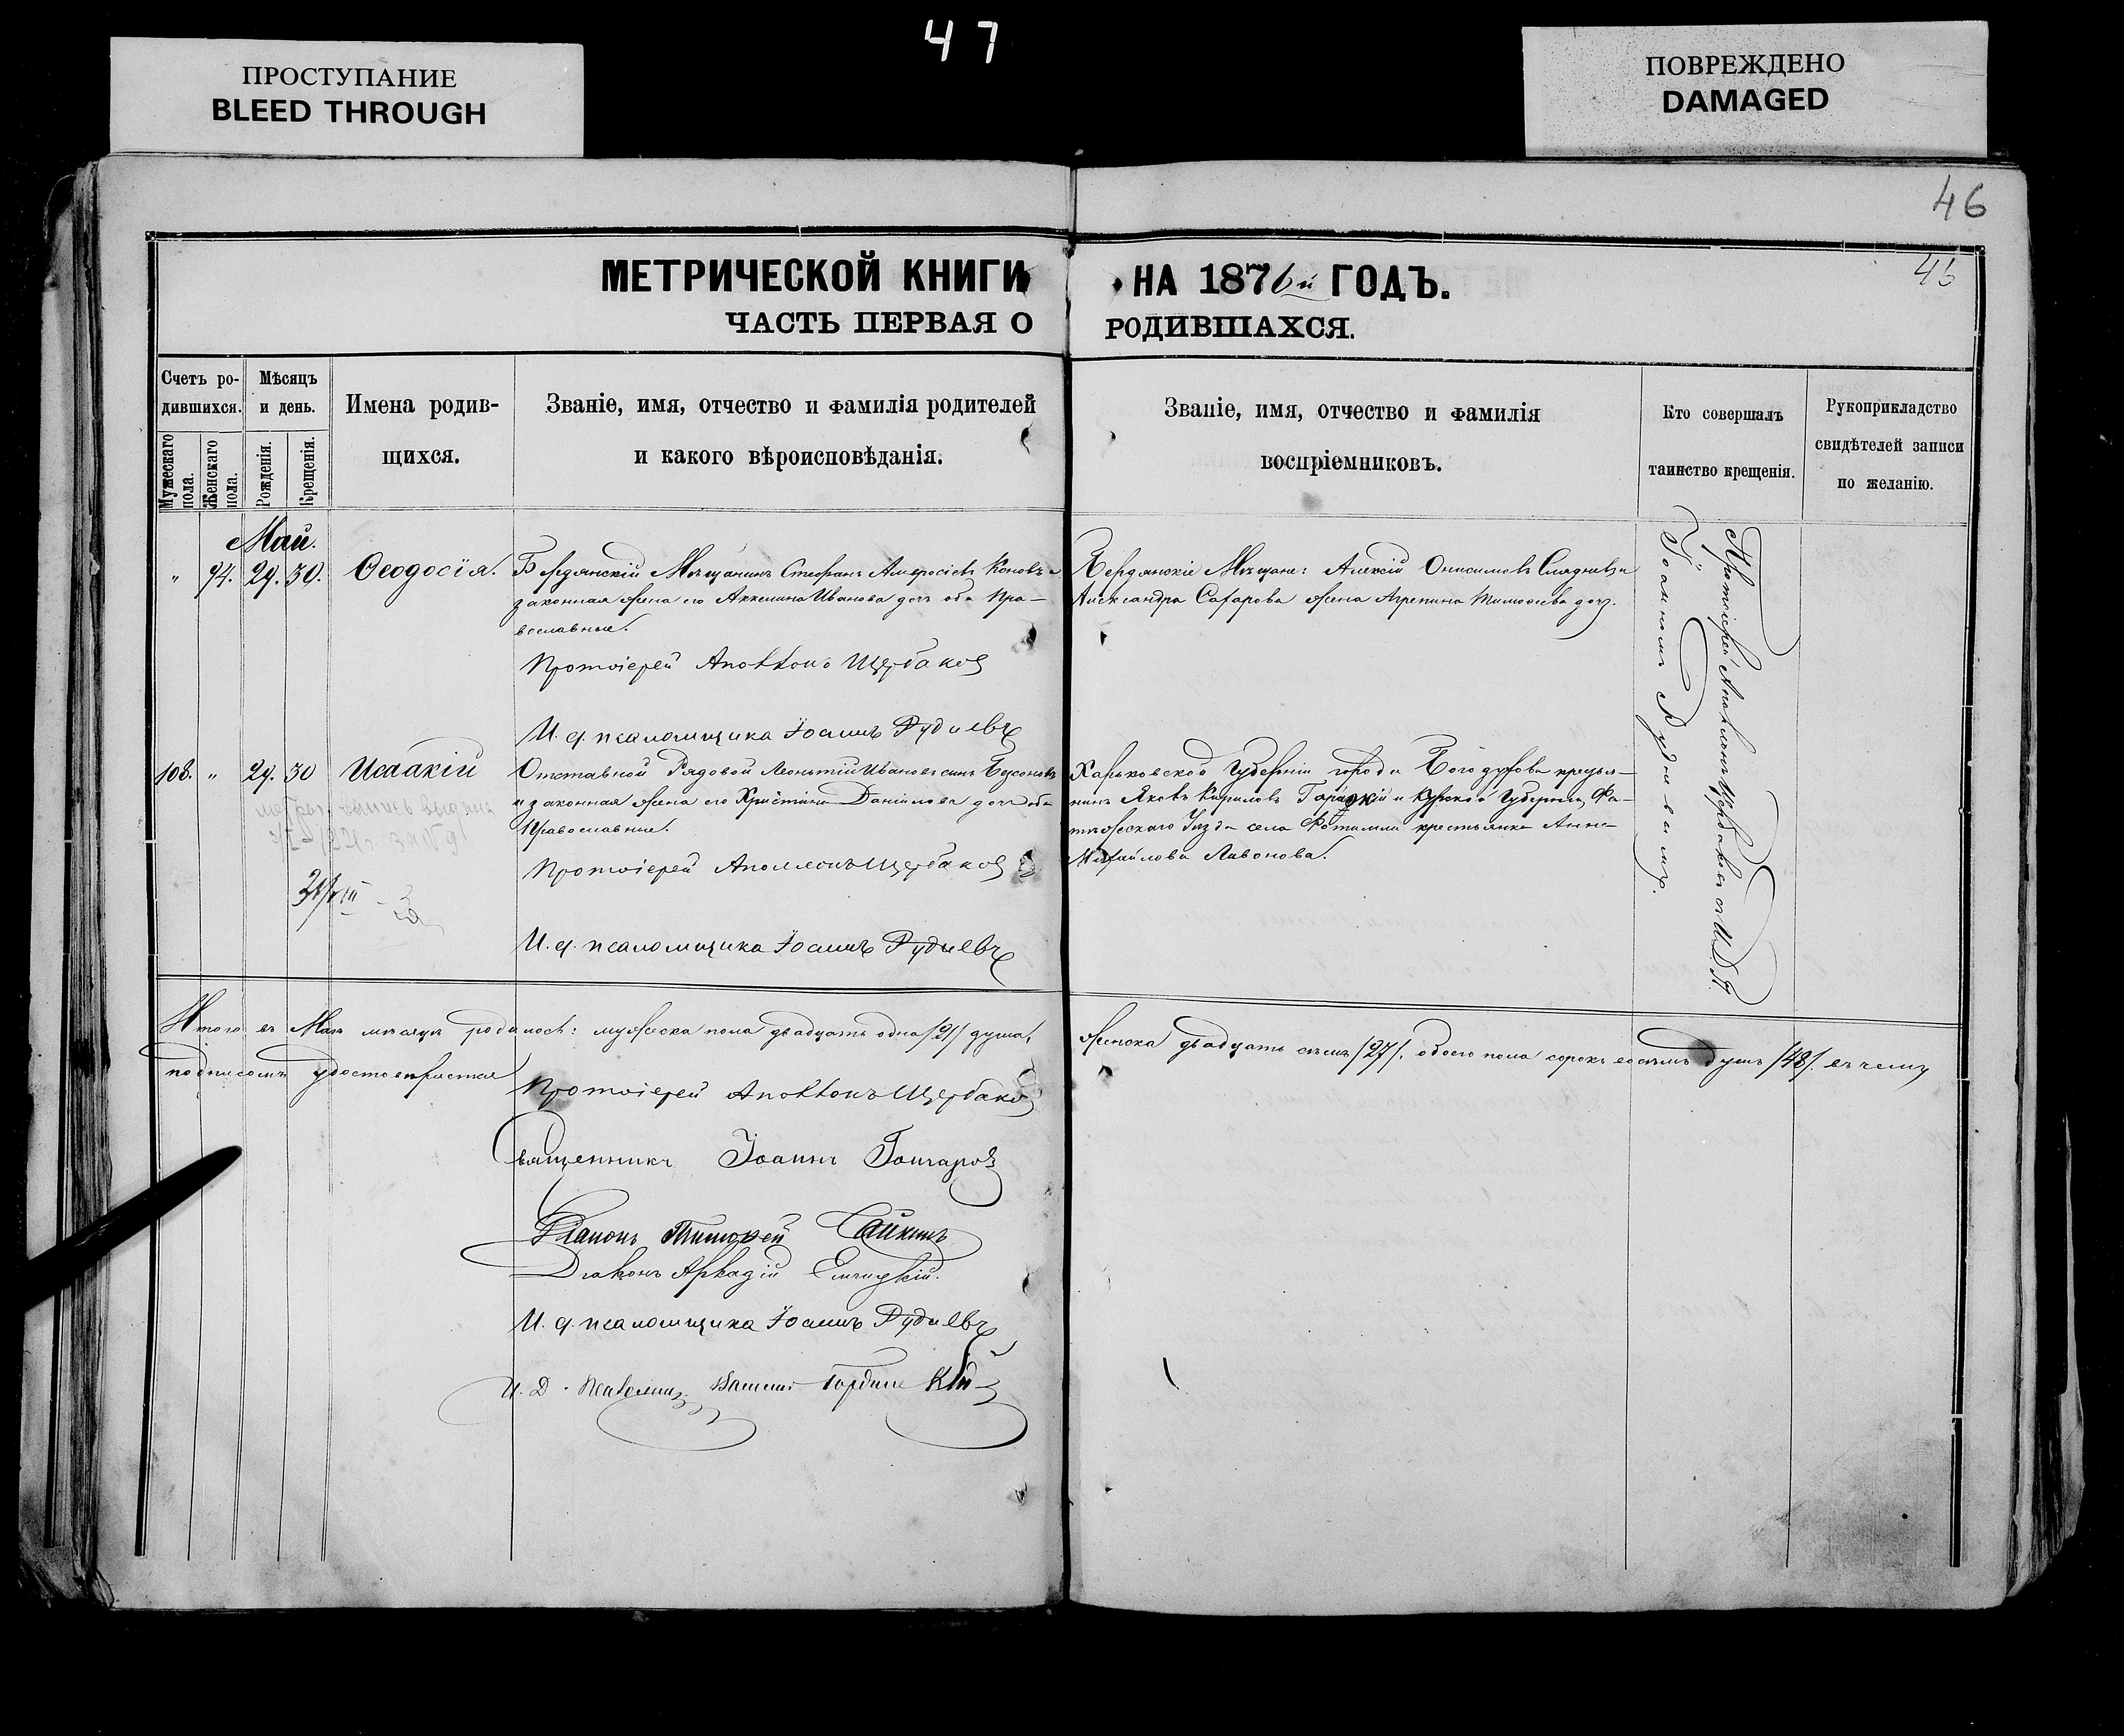 47
ПРОСТУПАНИЕ
BLEED THROUGH
ПОВРЕЖДЕНО
DAMAGED
46
МЕТРИЧЕСКОЙ КНИГИ НА 1876й ГОДЪ.
46
ЧАСТЬ ПЕРВАЯ О РОДИВШАХСЯ.
Счетъ ро-
дившихся.
Мужескаго пола.
Женскаго пола.
Мѣсяцъ
и день.
Рожденія.
Крещенія.
Имена родив-
шихся.
Званіе, имя, отчество и фамилія родителей
и какого вѣроисповѣданія.
Званіе, имя, отчество и фамилія
воспріемниковъ.
Кто совершалъ
таинство крещенія.
Рукоприкладство
свидѣтелей записи
по желанію.
Май.
" 94. 29. 30. Ѳеодосія.
Бердянскій Мѣщанинъ Стефанъ Амвросіевъ Коновъ и
законная жена его Аккилина Иванова дочь оба Пра-
вославные.
Протоіерей Аполлонъ Щербаковъ
И. д. псаломщика Іоаннъ Рудневъ
Бердянскіе Мѣщане: Алексій Онисимовъ и
Александра Сафарова жена Агрепина Тимоѳеева дочь.
108. " 29. 30 Исаакій
Отставной Рядовой Леонтій Ивановъ сынъ Бусоновъ
и законная жена его Христина Даніилова дочь оба
Православные.
Протоіерей Аполлонъ Щербаковъ
И. д. псаломщика Іоаннъ Рудневъ
Харьковской Губерніи города Богодухова
Яковъ Кириловъ и Курской Губерніи Фа-
тежскаго Уѣзда села крестьянка Анна
Михайлова Ливонова.
Протоіерей Аполлонъ Щербаковъ съ И. Д. П.
Іоанномъ Рудневымъ.
Итого въ Маѣ мѣсяцѣ родилось: мужеска пола двадцать одна /21/ душа,
женска двадцать семь /27/, обоего пола сорокъ восемь душъ /48/. въ чемъ
подписомъ удостовѣряется
Протоіерей Аполлонъ Щербаковъ
Священникъ Іоаннъ Гончаровъ
Діаконъ Тимоѳей Сайкинъ
Діаконъ Аркадій
И. д. псаломщика Іоаннъ Рудневъ
И. Д. Псаломщ.